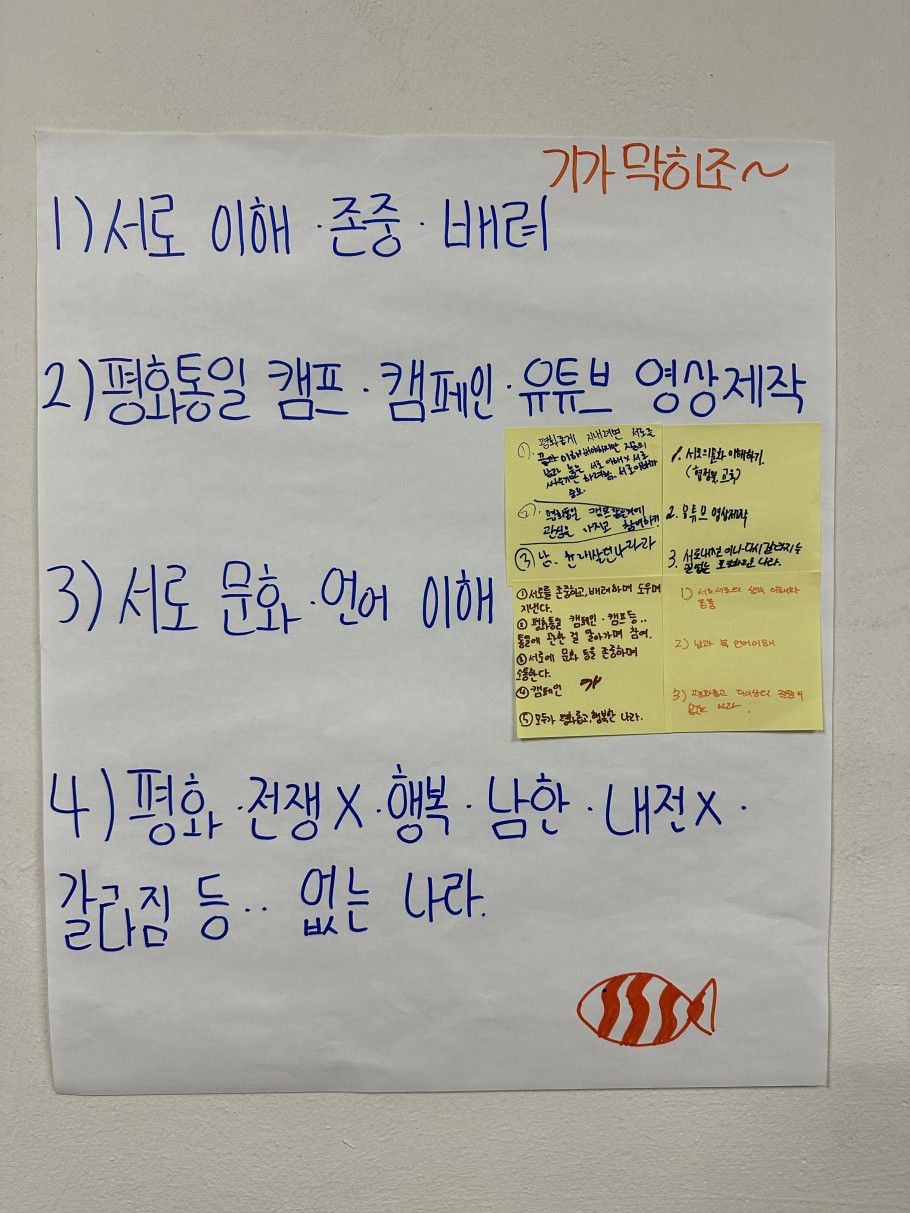 기가 막히조~
1) 서로 이해 · 존중 · 배려
2) 평화통일 캠프 · 캠페인 · 유튜브 영상제작
3) 서로 문화 · 언어 이해
4) 평화 · 전쟁X · 행복 · 남한 · 내전X ·
갈라짐 등.. 없는 나라.
①. 평화롭게 지내려면 서로를
서로 이해X 서로
중요.
②. 평화통일 캠프
관심을 가지고 참여하기
③ 남.
1. 서로의 문화 이해하기.
2. 유튜브 영상제작
3. 서로
나라.
① 서로를 존중하고, 배려하며 도우며
지낸다.
② 평화통일 캠페인 · 캠프 등..
통일에 관한 걸 알아가며 참여.
③ 서로에 문화 등을 존중하며
소통한다.
④ 캠페인
⑤ 모두가 평화롭고, 행복한 나라.
1) 이해와
존중
2) 남과 북 언어이해
3) 평화롭고 더이상의 전쟁이
없는 나라.